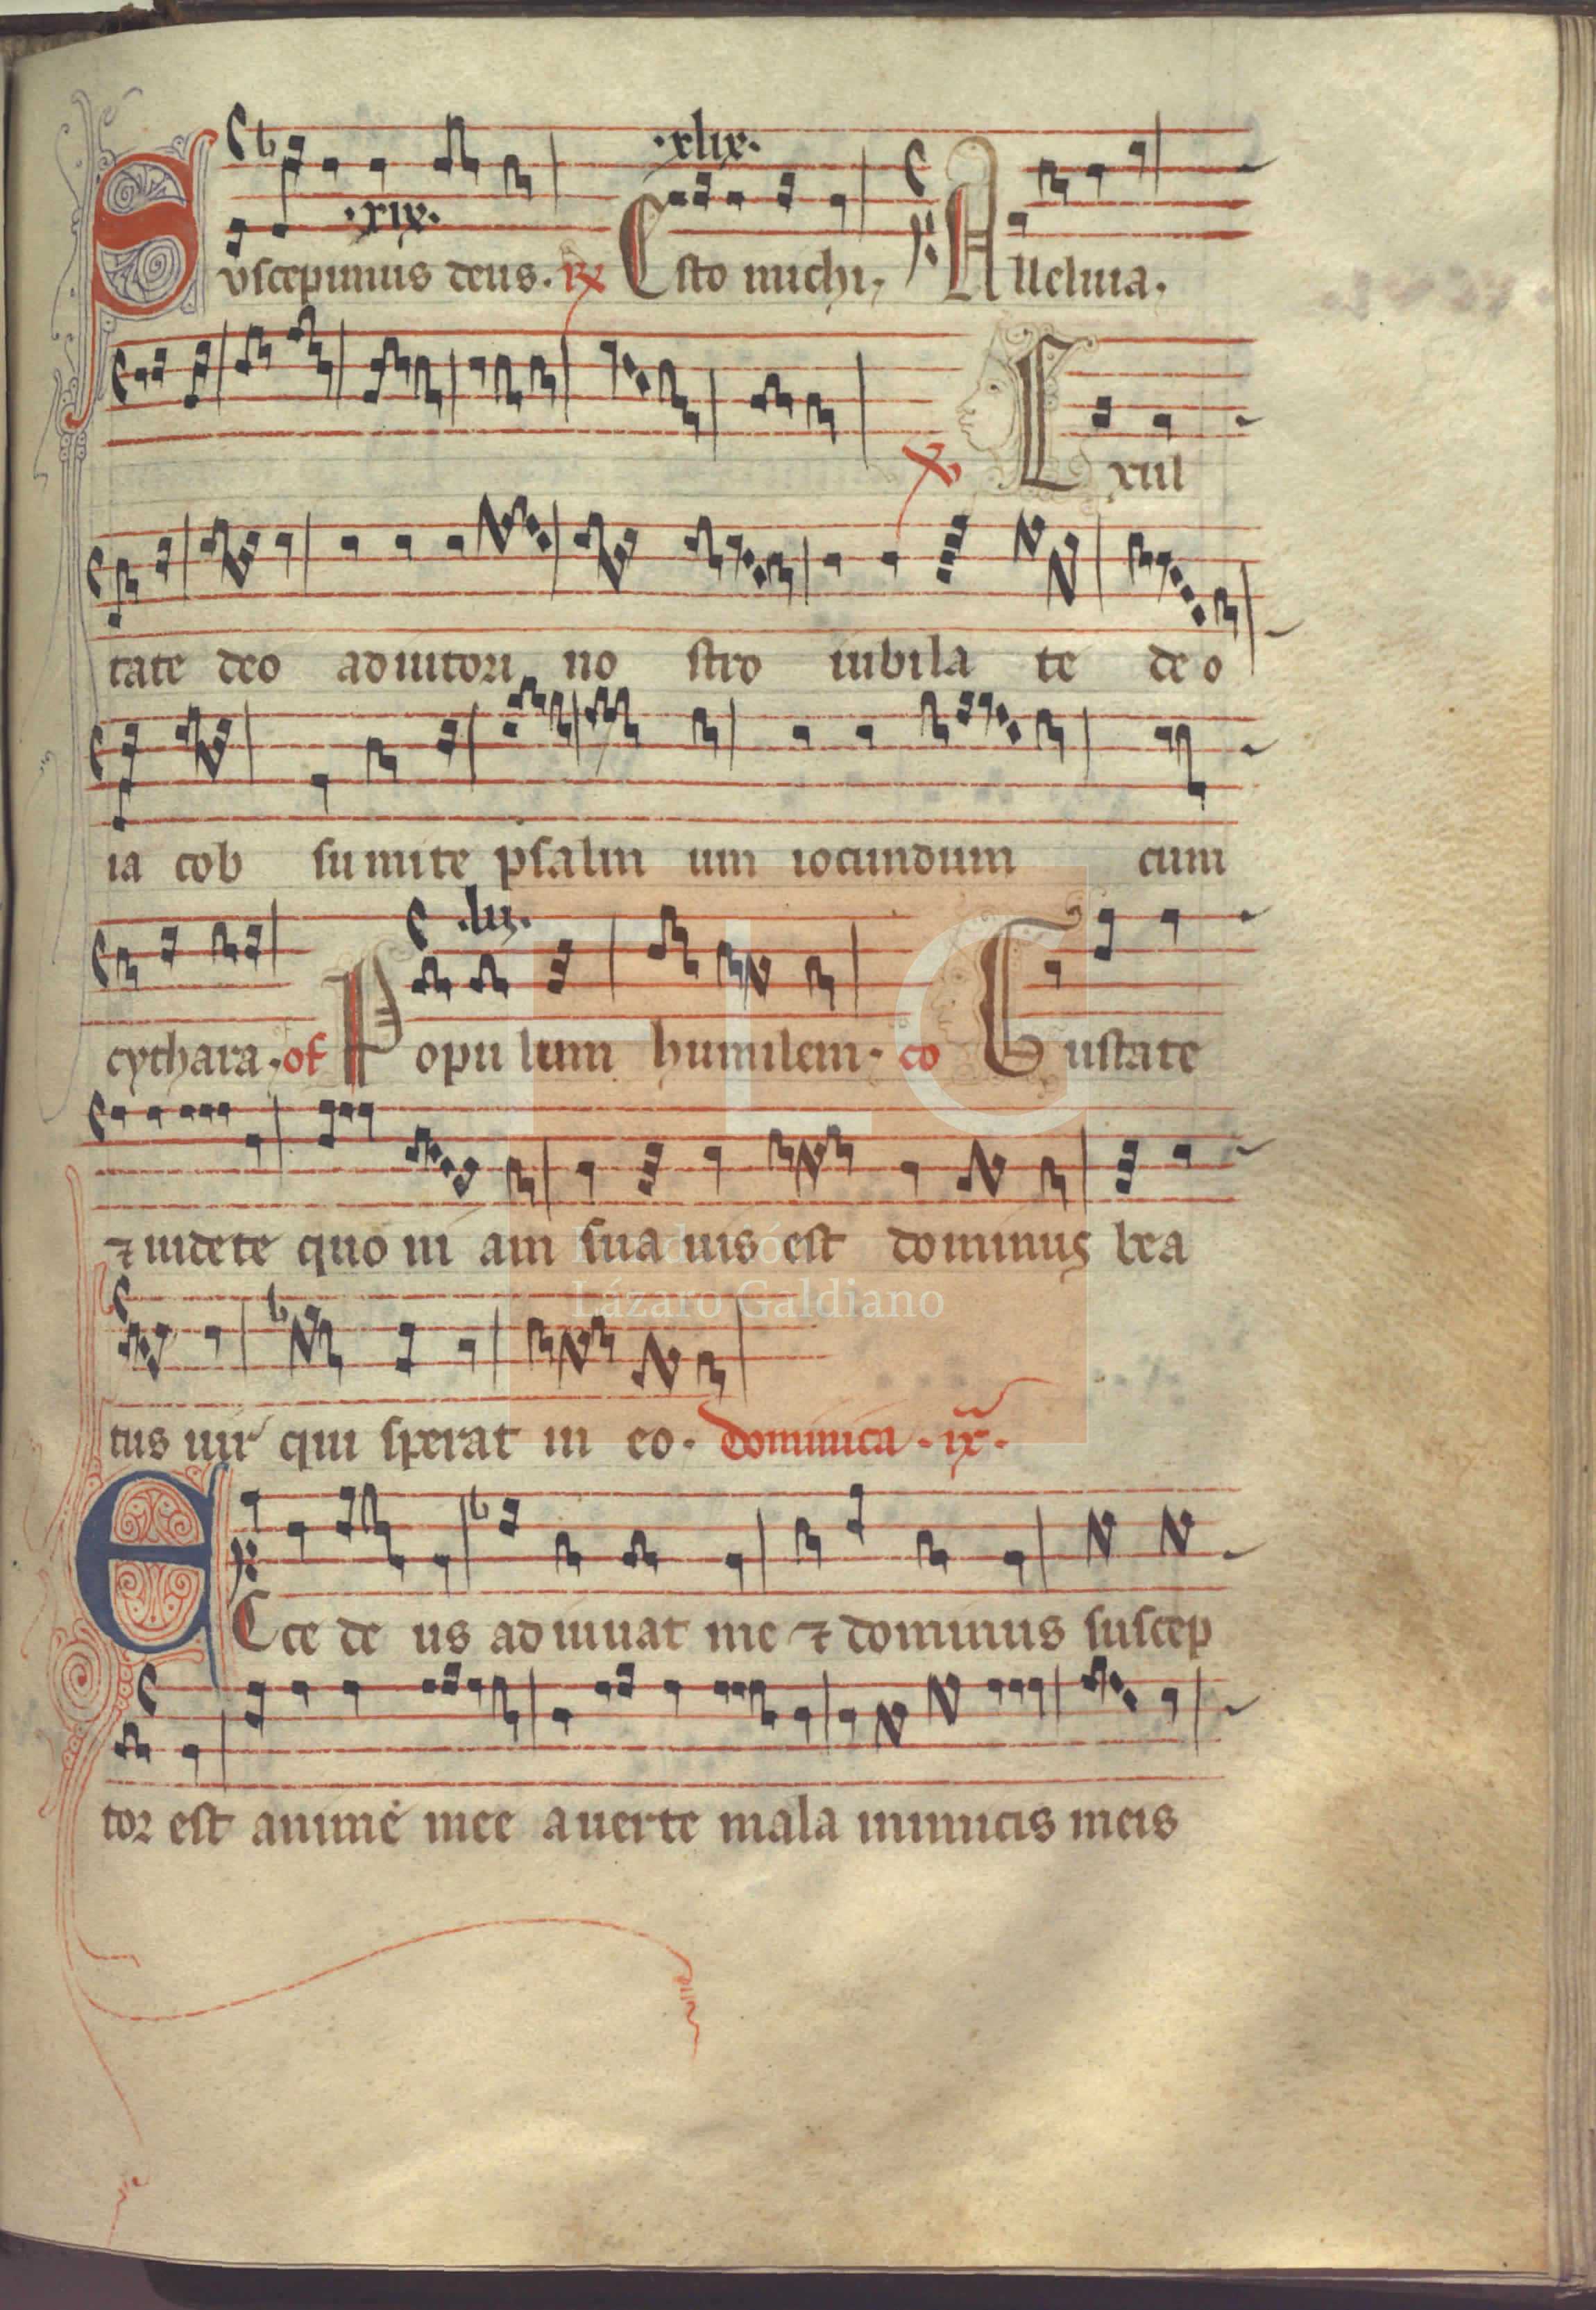 ·xlix·
·xix·
Suscepimus deus. R͞x Esto michi, Alleluia.
℣ Exul
tate deo adiutori no stro iubila te de o
ia cob sumite psalm um iocundum cum
·lii·
cythara. of Popu lum humilem. co Gustate
⁊ uidete quo ni am sua uis est dominus bea
Lázaro Galdiano
tus uir qui sperat in eo. dominica . ix᷈.
Ecce de us adiuuat me ⁊ dominus suscep
tor est anime mee auerte mala inimicis meis